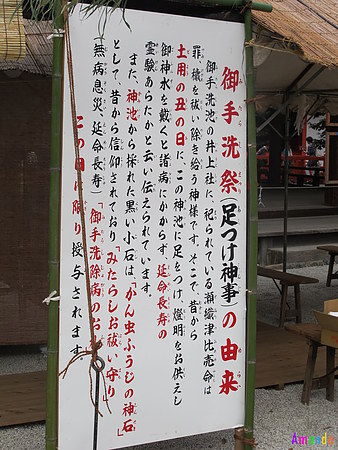 御手洗祭(足つけ神事)の由来
御手洗池の井上社に、祀られている瀬織津比売命は
罪、穢を祓い除き給う神様です。そこで昔から
土用の丑の日に、この神池に足をつけ、燈明をお供えし
御神水を戴くと諸病にかからず、延命長寿の
霊験あらたかと云い伝えられています。
また、神池から採れた黒い小石は、「かん虫ふうじの神石」
として、昔から信仰されており「みたらしお祓い守り」
無病息災、延命長寿)「御手洗除病のお
この日に限り授与されます